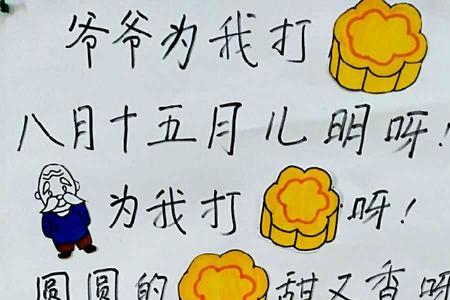 爷爷为我打
八月十五月儿明呀!
为我打 呀!
圆圆的 甜又香呀